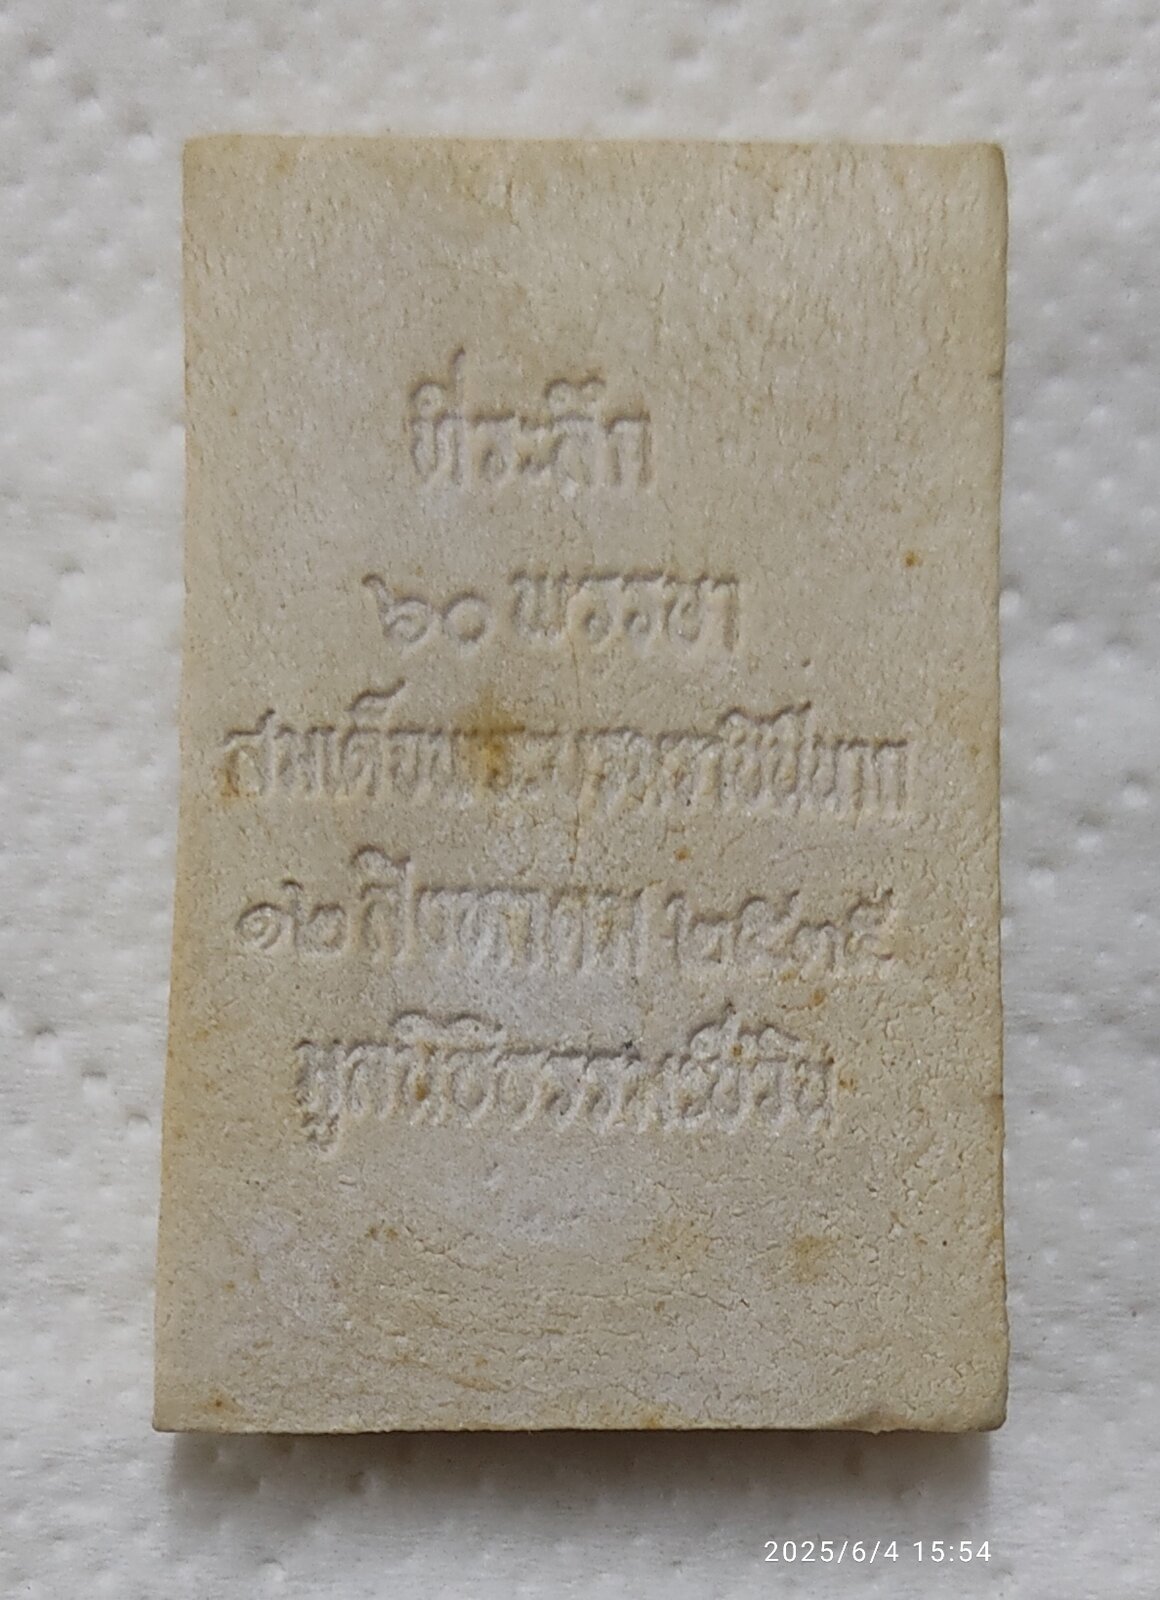 ที่ระลึก
๖๐ พรรษา
สมเด็จพระบรมราชินีนาถ
๑๒ สิงหาคม ๒๕๓๕
มูลนิธิธรรม
2025/6/4 15:54